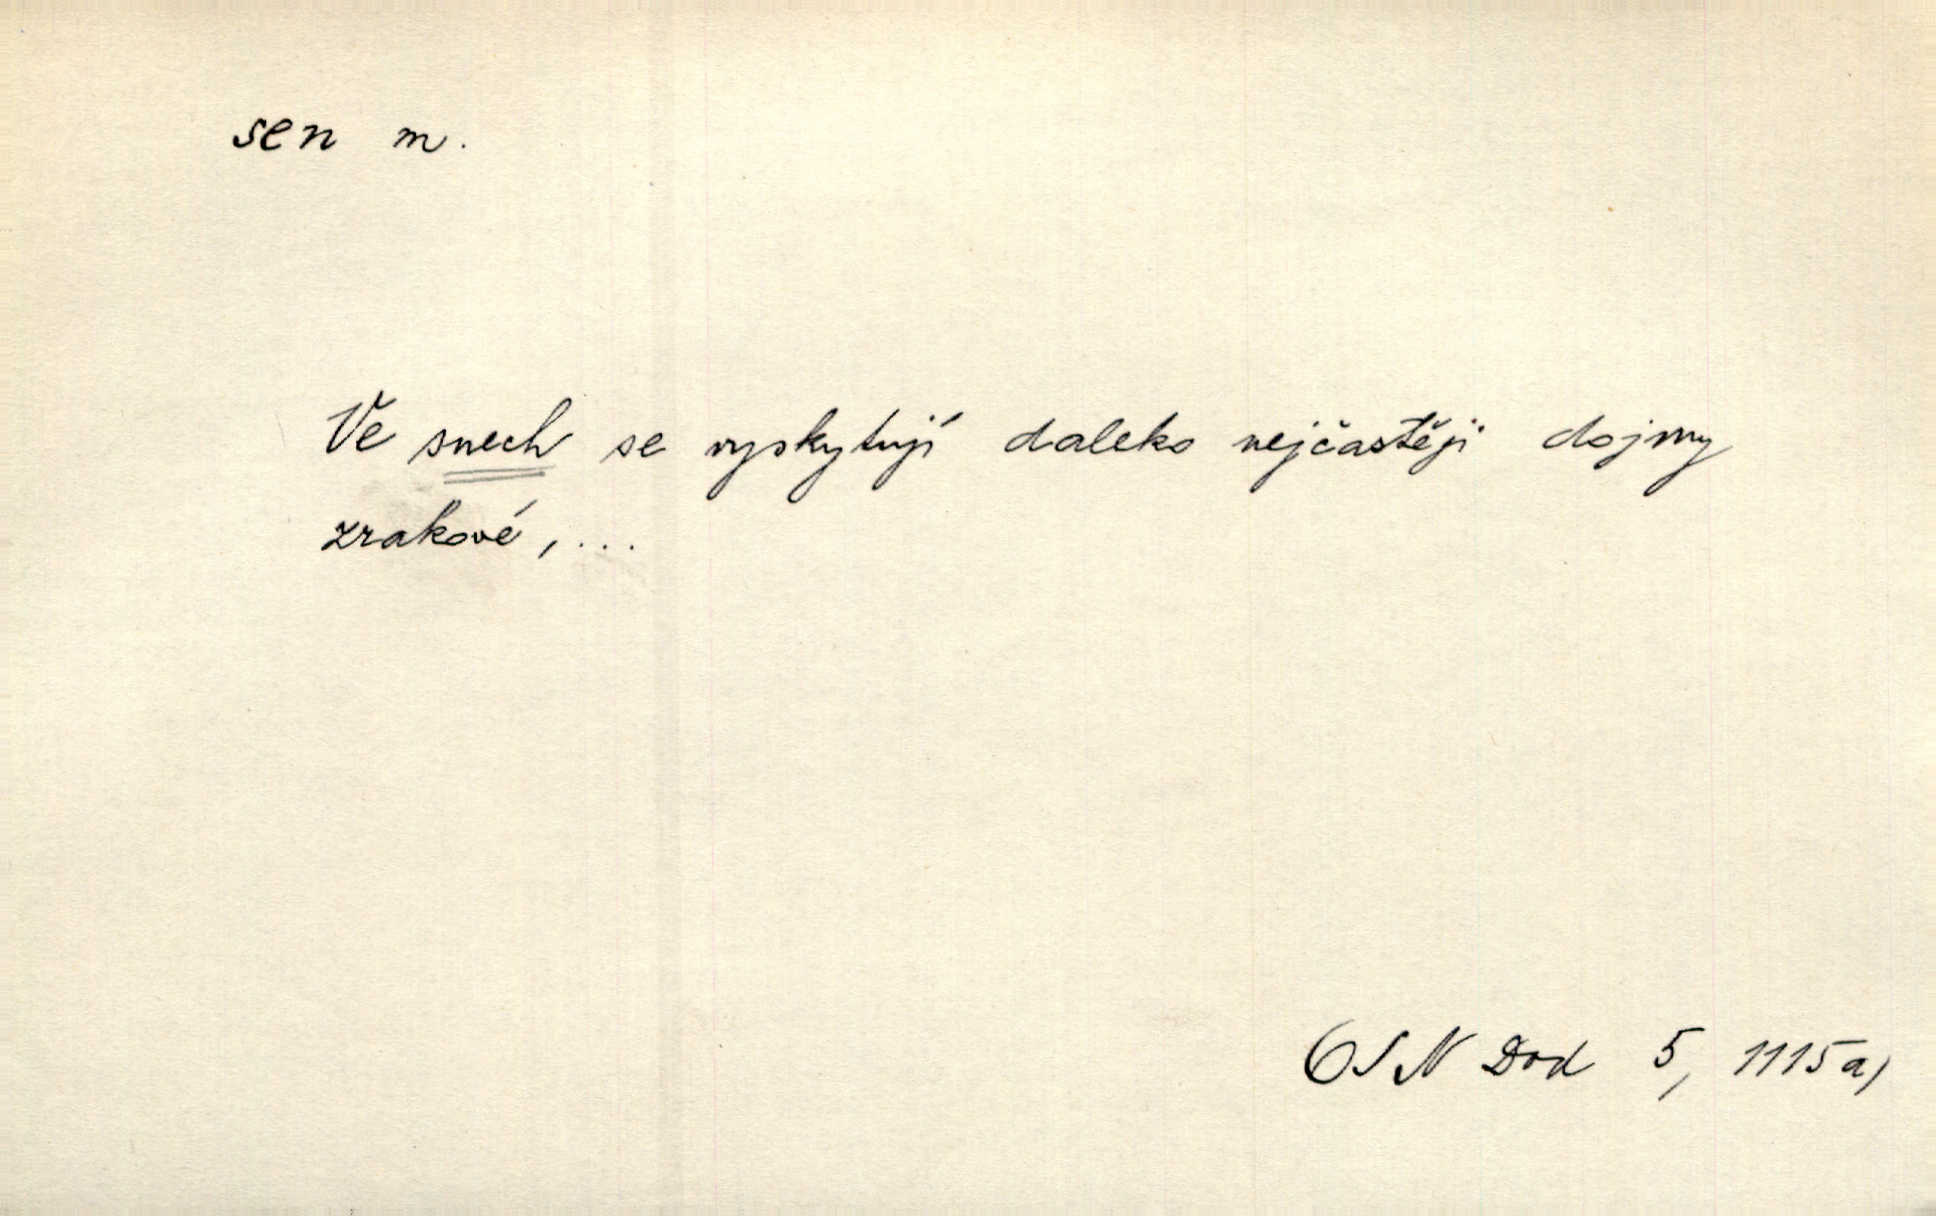 sen m.
Ve snech se vyskytují daleko nejčastěji dojmy
zrakové, ...
OSN Dod 5, 1115a)